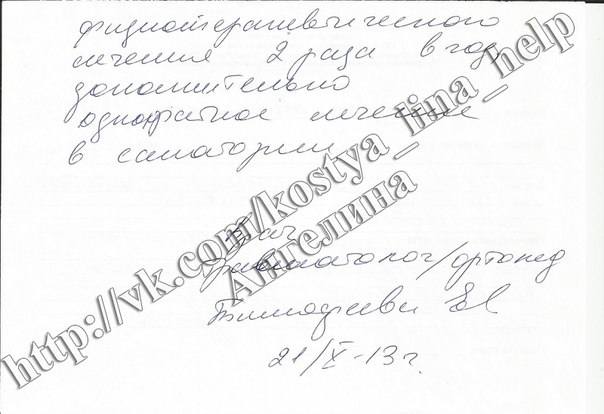 физиотерапевтического
лечения 2 раза в год
дополнительно
однократное лечение
в санатории
Врач
травматолог/ортопед
Тимофеева Е
21/X-13г.
http://vk.com/kostya_lina_help
Ангелина